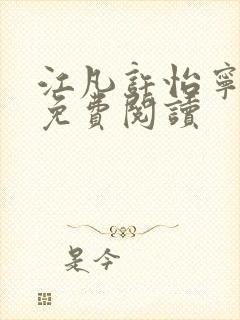 江凡許怡寧
免費閱讀
是今